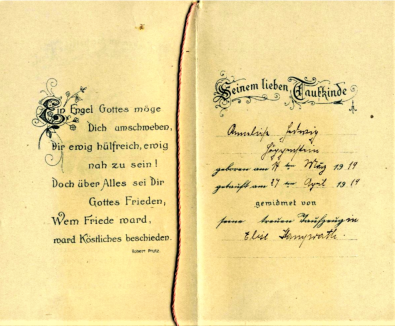 Ein Engel Gottes möge
Dich umschweben,
Dir ewig hülfreich, ewig
nah zu sein!
Doch über Alles sei Dir
Gottes Frieden,
Wem Friede ward,
ward Köstliches beschieden.
Robert Prutz.
Seinem lieben Taufkinde
Anneliese Hedwig
geboren am 14 ten März 1919
getauft am 27 ten April 1919
gewidmet von
seine treuen Taufzeugin
Elise